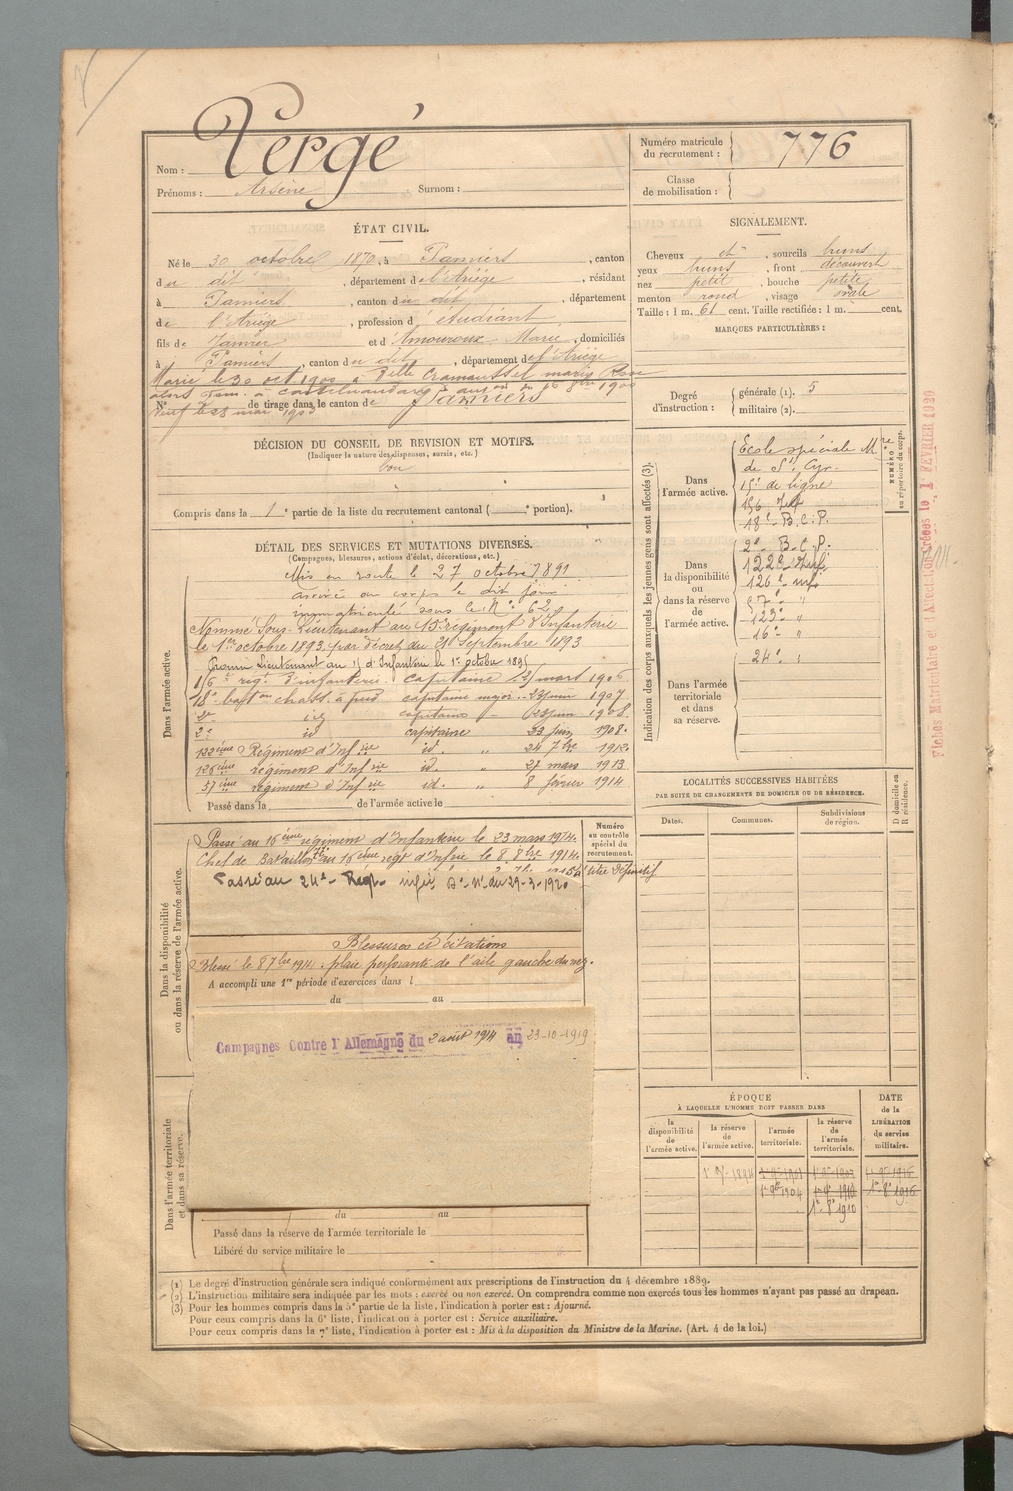 Nom : Vergé
Prénoms : Arsène Surnom :
Numéro matricule du recrutement : 776
Classe de mobilisation :
ÉTAT CIVIL.
Né le 30 octobre 1870, à Pamiers, canton
du dit, département de l'Ariège, résidant
à Pamiers, canton du dit, département
de l'Ariège, profession d'étudiant
fils de Janvier et d'Amouroux Marie, domiciliés
à Pamiers, canton du dit, département de l'Ariège
Marié le 30 oct. 1900 à Delle Cramaussel Marie Rose
N° de tirage dans le canton de Pamiers
SIGNALEMENT.
Cheveux ch, sourcils bruns
yeux bruns, front découvert
nez petit, bouche petite
menton rond, visage ovale
Taille : 1 m. 61 cent. Taille rectifiée : 1 m. cent.
MARQUES PARTICULIÈRES :
Degré d'instruction : générale (1). 5
militaire (2).
DÉCISION DU CONSEIL DE REVISION ET MOTIFS.
(Indiquer la nature des dispenses, sursis, etc.)
bon
Compris dans la 1e partie de la liste du recrutement cantonal ( e portion).
DÉTAIL DES SERVICES ET MUTATIONS DIVERSES.
(Campagnes, blessures, actions d'éclat, décorations, etc.)
Dans l'armée active.
Mis en route le 27 octobre 1891
arrivé au corps le dit jour
immatriculé sous le N° 62
Nommé Sous-Lieutenant au 15e régiment d'Infanterie
le 1er octobre 1893, par décret du 21 Septembre 1893
Promu Lieutenant au 15 d'Infanterie le 1er octobre 1895
rég. d'infanterie. Capitaine mars 1906
18e bataon chass. à pied capitaine major 23 juin 1907
2e id capitaine 23 juin 1908.
2e id capitaine 23 juin 1908.
122ème Régiment d'Infrie id. " 24 7bre 1912.
126ème régiment d'Infrie id. " 27 mars 1913
57ème régiment d'Infrie id. " 8 février 1914
Passé dans la de l'armée active le
Dans la disponibilité ou dans la réserve de l'armée active.
Passé au 16ème régiment d'Infanterie le 23 mars 1914.
Chef de Bataillon au 16ème régt d'Infrie le 8 8bre 1914.
titre Définitif
Passé au 24e Regt infie du 29-3-1920
Numéro au contrôle spécial du recrutement.
Blessures et citations
Blessé le 8 7bre 1914 : plaie perforante de l'aile gauche du nez.
A accompli une 1re période d'exercices dans l
du au
Campagnes Contre l'Allemagne du 2 août 1914 au 23-10-1919
Dans l'armée territoriale et dans sa réserve.
du au
Passé dans la réserve de l'armée territoriale le
Libéré du service militaire le
Indication des corps auxquels les jeunes gens sont affectés (3).
NUMÉRO au répertoire du corps.
Dans l'armée active.
Ecole spéciale Mre
de St Cyr
15e de ligne
156 Inf
18e B. C. P.
Dans la disponibilité ou dans la réserve de l'armée active.
2e B. C. P.
122e Inf
126e inf
57e "
123e "
16e "
24e "
Dans l'armée territoriale et dans sa réserve.
LOCALITÉS SUCCESSIVES HABITÉES
PAR SUITE DE CHANGEMENTS DE DOMICILE OU DE RÉSIDENCE.
D domicile ou R résidence.
Dates. Communes. Subdivisions de région.
ÉPOQUE
À LAQUELLE L'HOMME DOIT PASSER DANS
DATE de la LIBÉRATION du service militaire.
la disponibilité de l'armée active.
la réserve de l'armée active.
l'armée territoriale.
la réserve de l'armée territoriale.
Fiches Matriculaire et d'Affectation créées le 1 FÉVRIER 1920
(1) Le degré d'instruction générale sera indiqué conformément aux prescriptions de l'instruction du 4 décembre 1889.
(2) L'instruction militaire sera indiquée par les mots : exercé ou non exercé. On comprendra comme non exercés tous les hommes n'ayant pas passé au drapeau.
(3) Pour les hommes compris dans la 5e partie de la liste, l'indication à porter est : Ajourné.
Pour ceux compris dans la 6e liste, l'indication à porter est : Service auxiliaire.
Pour ceux compris dans la 7e liste, l'indication à porter est : Mis à la disposition du Ministre de la Marine. (Art. 4 de la loi.)